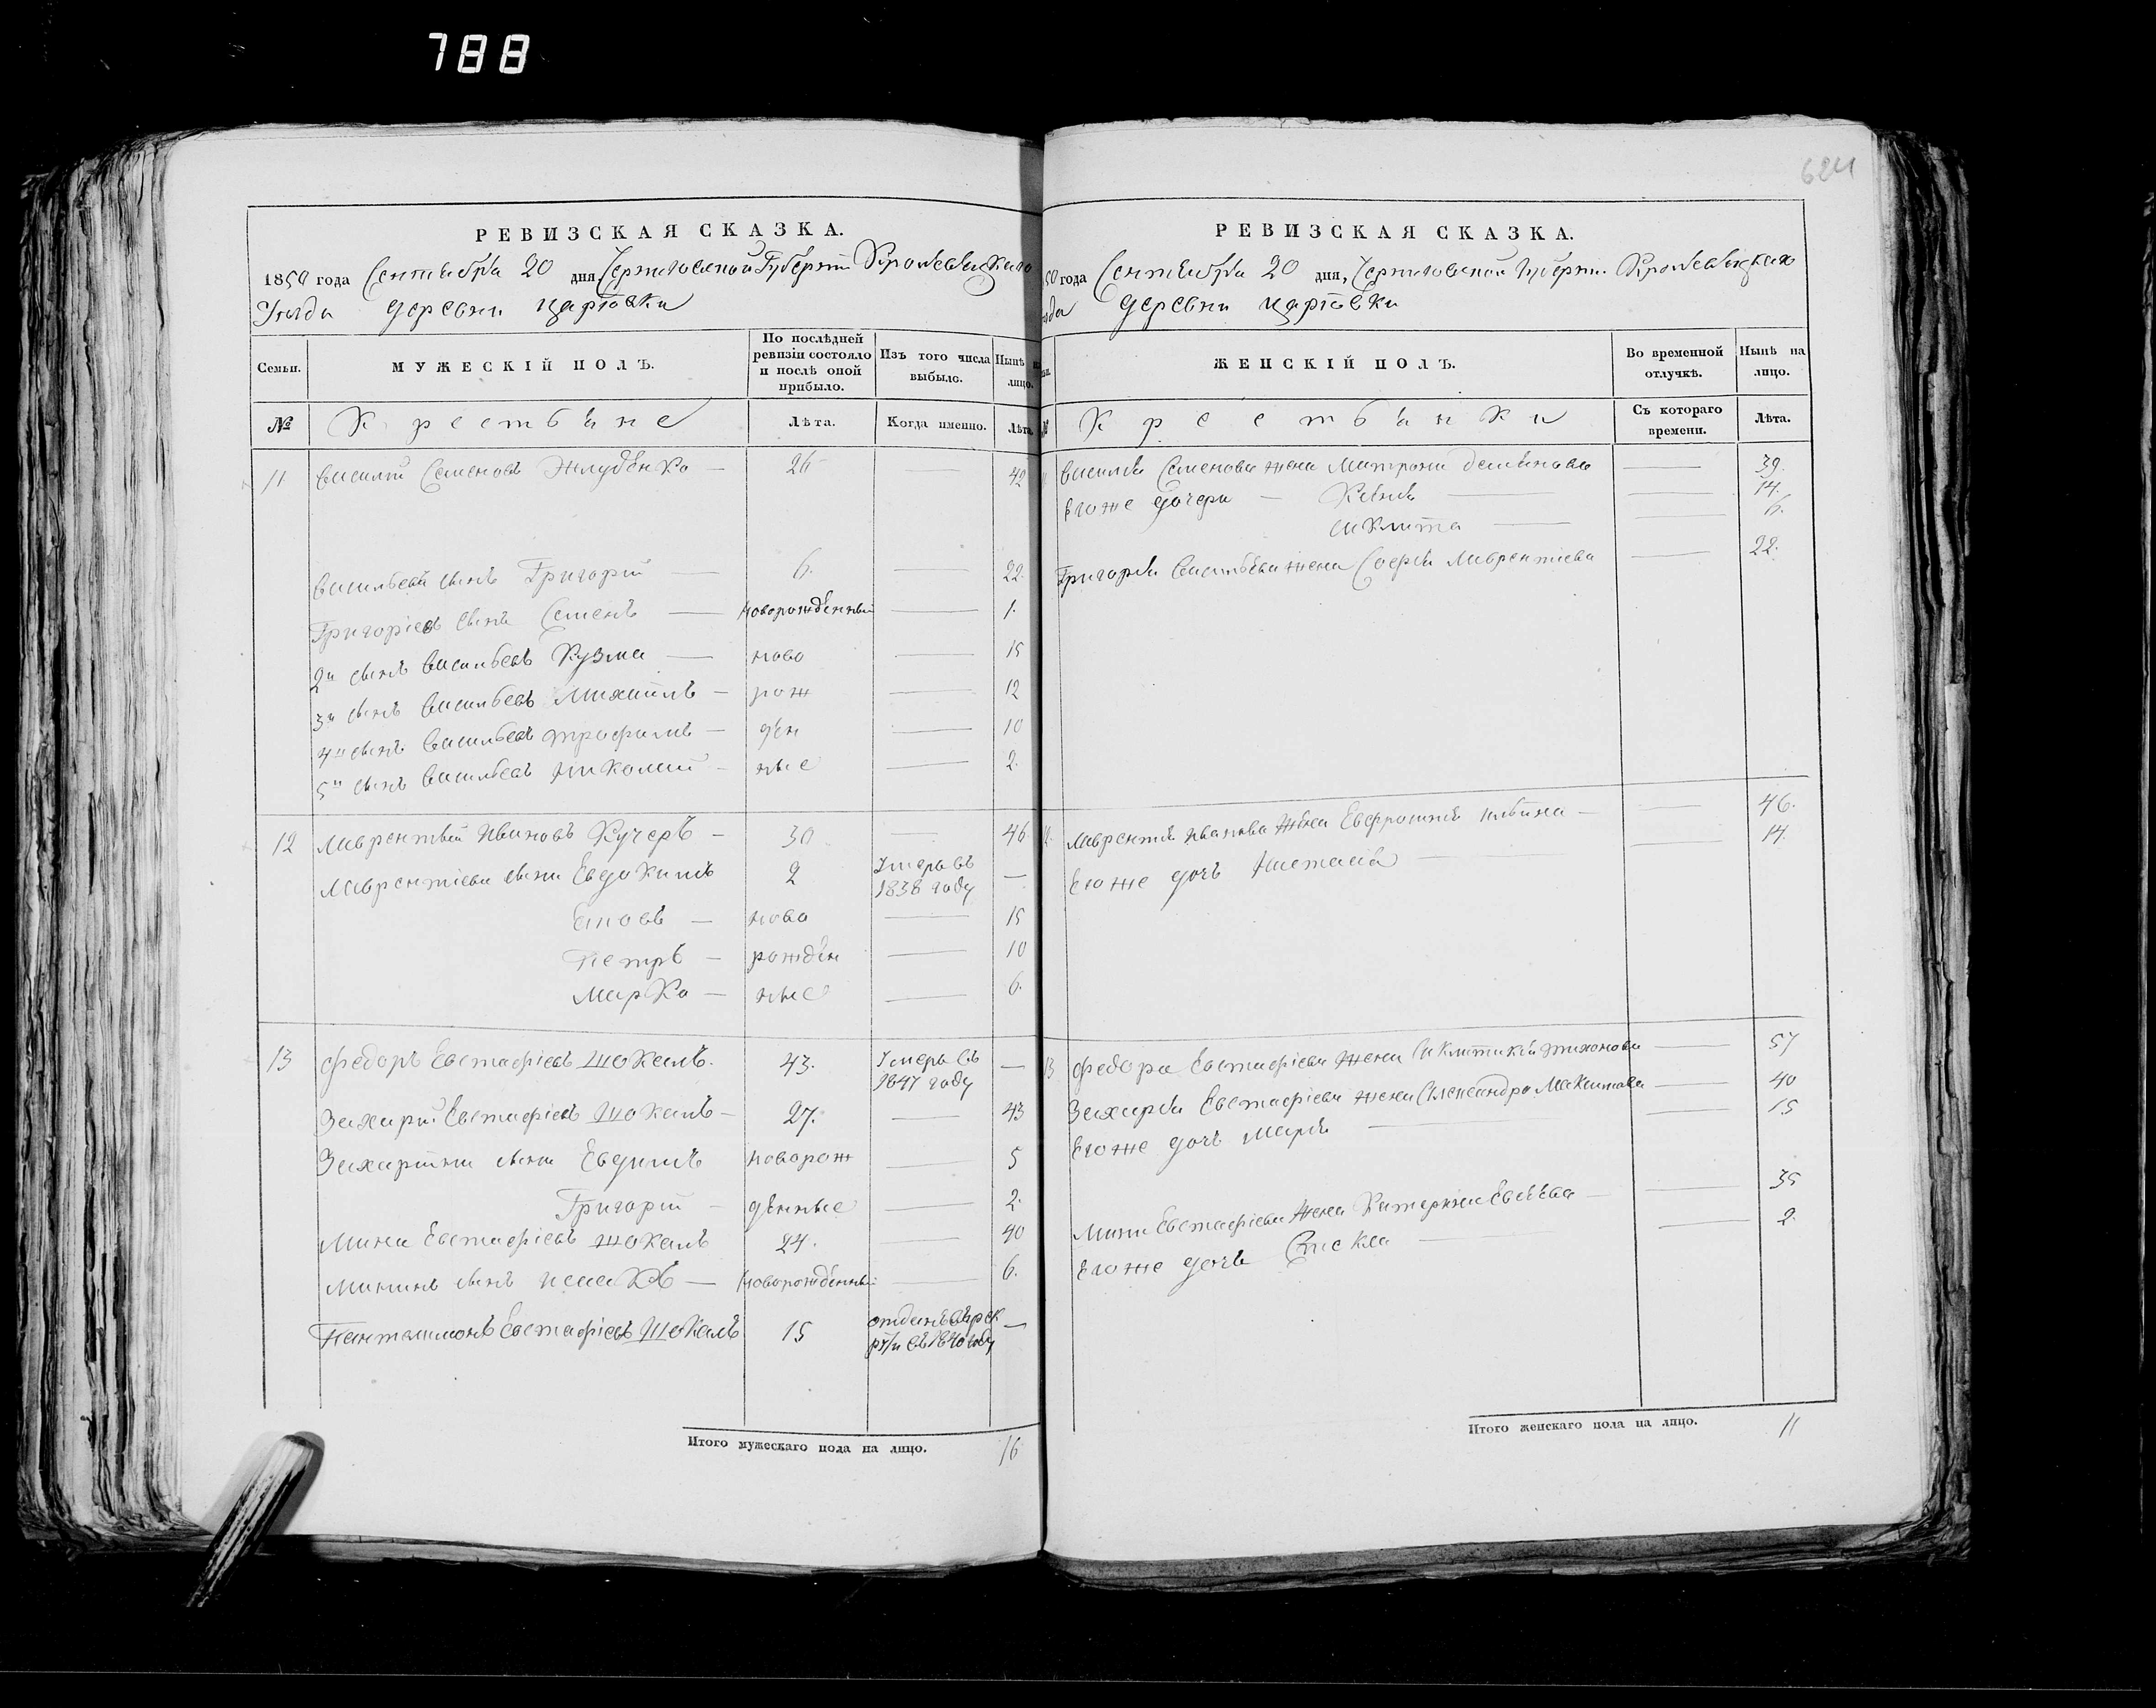 788
624
РЕВИЗСКАЯ СКАЗКА.
1850 года Сентября 20 дня, Черниговской Губернии Кролевецкаго
Уезда деревни царговки
Семьи. МУЖЕСКІЙ ПОЛЪ. По послѣдней ревизіи состояло и послѣ оной прибыло. Изъ того числа выбыло. Нынѣ на лицо.
№ Крестьяне Лѣта. Когда именно. Лѣта
11 Василій Семеновъ Жлуденко — 26 42
Васильевъ сынъ Григорій — 6. — 22.
Григоріевъ сынъ Семенъ — новорожденный — 1.
2й сынъ Васильевъ Кузма — ново — 15
3й сынъ Васильевъ Михаилъ — рож — 12
4й сынъ Васильевъ трофимъ — ден — 10
5й сынъ Васильевъ Николай — ные — 2.
12 Лаврентий Ивановъ Кучеръ — 30 — 46
Лаврентіева сыны Евдокимъ 2 Умеръ въ 1838 году —
— ново — 15
Петръ — рожден — 10
Марко — ные — 6.
13 Федоръ Евстафіевъ Шокалъ. 43. Умеръ въ 1847 году —
Захарій Евстафіевъ Шокалъ — 27. — 43
сыны новорож — 5
Григорій — денные — 2.
Мина Евстафіевъ Шокалъ 24. — 40
Мининъ сынъ Исаакъ — новорожденный — 6.
Пантелимонъ Евстафіевъ Шокалъ 15 отданъ въ рек руты въ 1840 году —
Итого мужескаго пола на лицо. 16
РЕВИЗСКАЯ СКАЗКА.
50 года Сентября 20 дня, Черниговской Губерни. Кролевецкаго
езда деревни царговки
ЖЕНСКІЙ ПОЛЪ. Во временной отлучкѣ. Нынѣ на лицо.
№ Крестьянки Съ котораго времени. Лѣта.
11 Василія Семенова жена Матрона Демянова — 39.
Его же дочери — Ксенія — 14.
— 6.
Григорія Васильева жена Софія Лаврентіева — 22.
12 Лаврентія Иванова жена Евфросинія — 46.
Его же дочь Настасія — 14.
13 Федора Евстафіева жена тихонова — 57
Захарія Евстафіева жена Александра Максимова — 40
Его же дочь Марія — 15
Мины Евстафіева жена Катерина Евсеева — 35
Его же дочь — 2.
Итого женскаго пола на лицо. 11